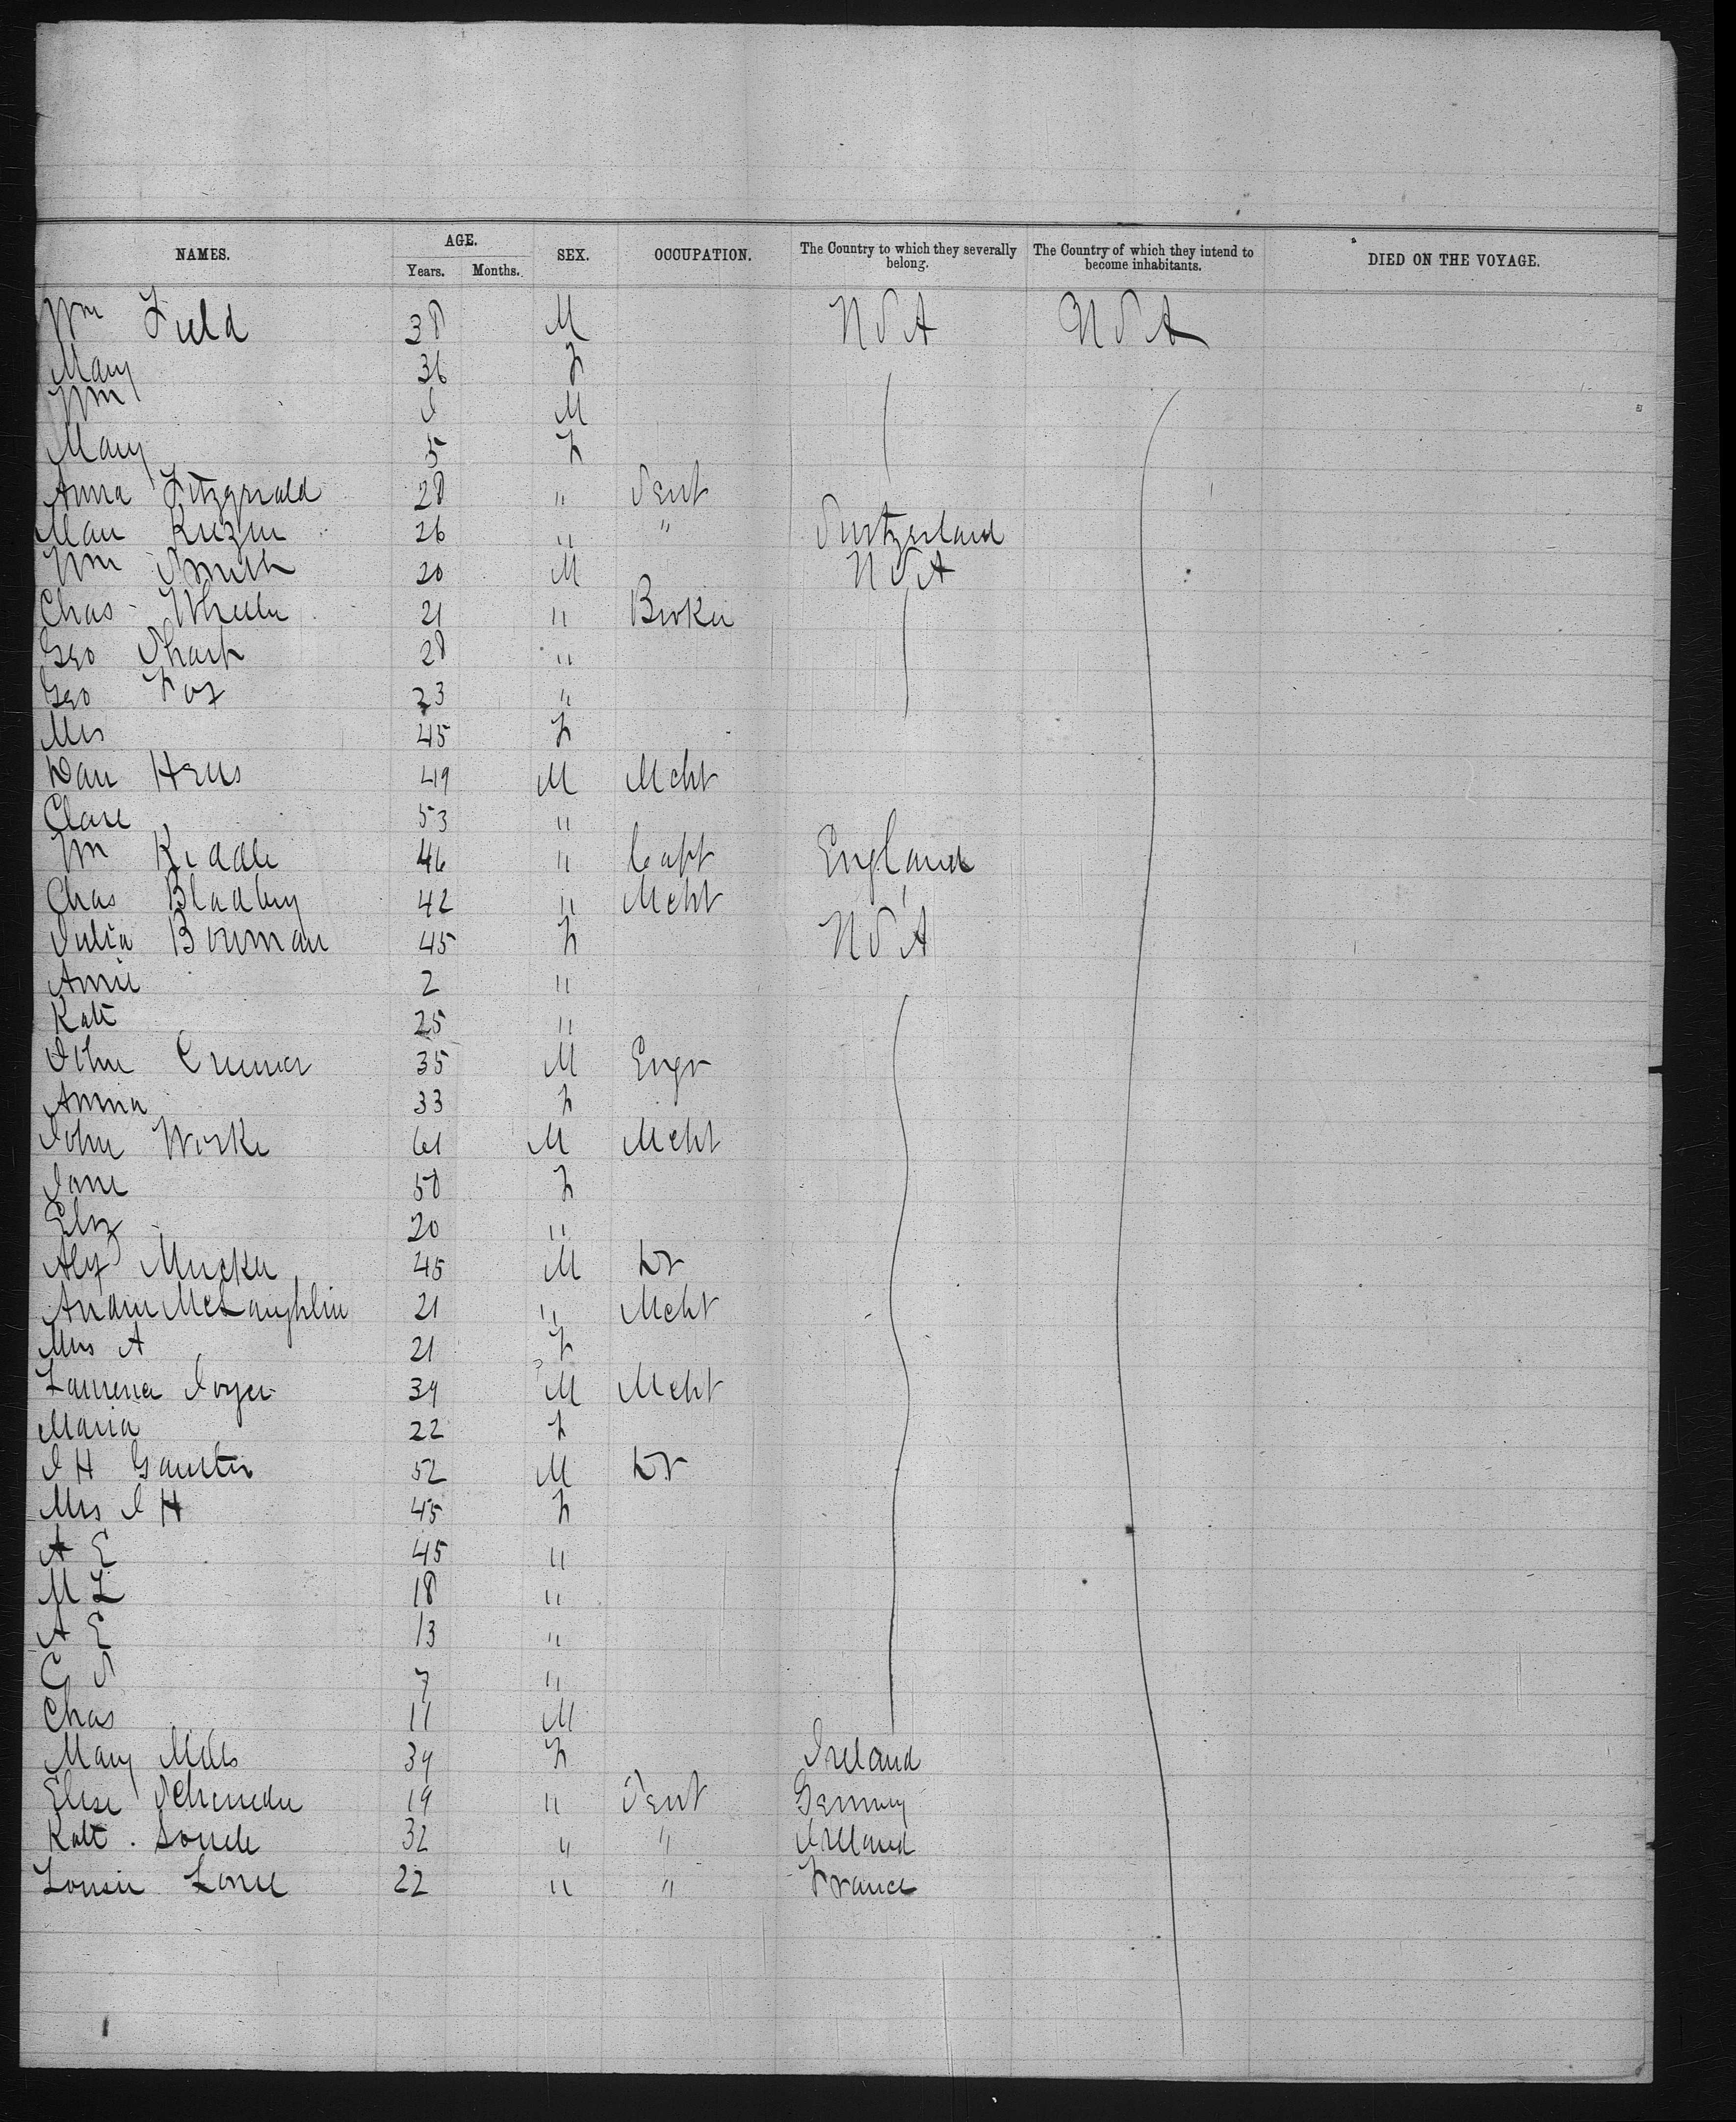 NAMES. AGE. SEX. OCCUPATION. The Country to which they severally belong. The Country of which they intend to become inhabitants. DIED ON THE VOYAGE.
Years. Months.
Wm Field 38 M USA USA
Mary 36 F
Wm 8 M
Mary 5 F
Anna Fitzgerald 28 " Sevt
26 " " Switzerland
Wm Smith 20 M USA
Chas Wheeler 21 " Broker
Geo Sharp 28 "
Geo Fox 23 "
Mrs 45 F
Dan 49 M Mcht
Clare 53 "
Wm Kiddle 46 " Capt England
Chas Bladbury 42 " Mcht
Julia Bowman 45 F USA
Annie 2 "
Kate 25 "
John 35 M Engr
Anna 33 F
John Worke 61 M Mcht
Jane 58 F
Eliz 20 "
45 M Dr
Andrew McLaughlin 21 " Mcht
Mrs A 21 F
39 M Mcht
Maria 22 F
J H 52 M Dr
Mrs J H 45 F
A E 45 "
M L 18 "
A E 13 "
C S 7 "
Chas 11 M
Mary Mills 39 F Ireland
Elise Schneider 19 " Sevt Germany
Kate 32 " " Ireland
22 " " France